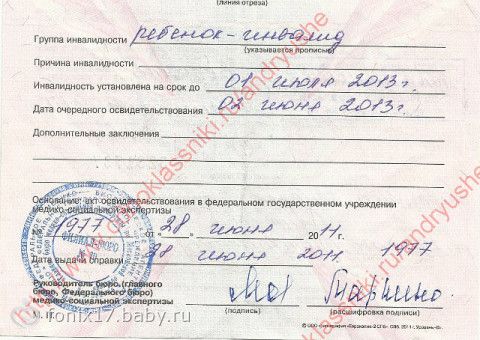 (линия отреза)
Группа инвалидности ребенок-инвалид
(указывается прописью)
Причина инвалидности
Инвалидность установлена на срок до 01 июля 2013г.
Дата очередного освидетельствования 01 июня 2013г.
Дополнительные заключения
Основание: акт освидетельствования в федеральном государственном учреждении
медико-социальной экспертизы
№ 1977 от 28 июня 2011 г.
Дата выдачи справки 28 июня 2011 1977
Руководитель бюро (главного
бюро, Федерального бюро)
медико-социальной экспертизы
(подпись) (расшифровка подписи)
М. П.
fronix17.baby.ru
odnoklassniki.ru/andryushe